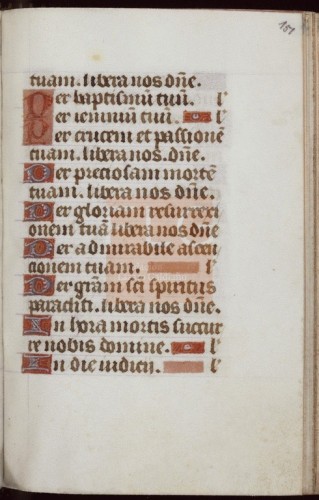 151
tuam. libera nos dñe.
Per baptismũ tuũ. lʳ
Per ieiuniũ tuũ. lʳ
Per crucem et passionẽ
tuam. libera nos. dñe.
Per preciosam mortẽ
tuam. libera nos dñe.
Per gloriam resurrexi
onem tuã libera nos dñe
Per admirabile ascen
cionem tuam. lʳ
Per grãm sc̃i spiritus
paracliti. libera nos dñe.
In hora mortis succur
re nobis domine. lʳ
In die iudicii. lʳ